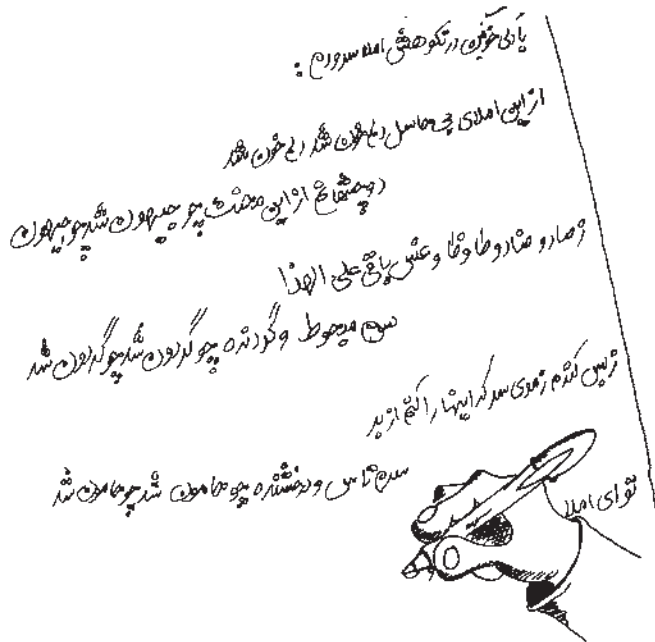 با دلی خونین در نکوهش املا سرودم:
از این املای بی حاصل دلم خون شد دلم خون شد
دو چشمانم از این محنت چو جیهون شد چو جیهون
ز صاد و ضاد و طا و ظا و عین باقی علی الهذا
سرم مخوط و گردنده چو گردون شد چو گردون شد
ز بس کندم ز موی سر که اینها را کنم از بر
سرم تاس و درخشنده چو هامون شد چو هامون شد
تو ای املا